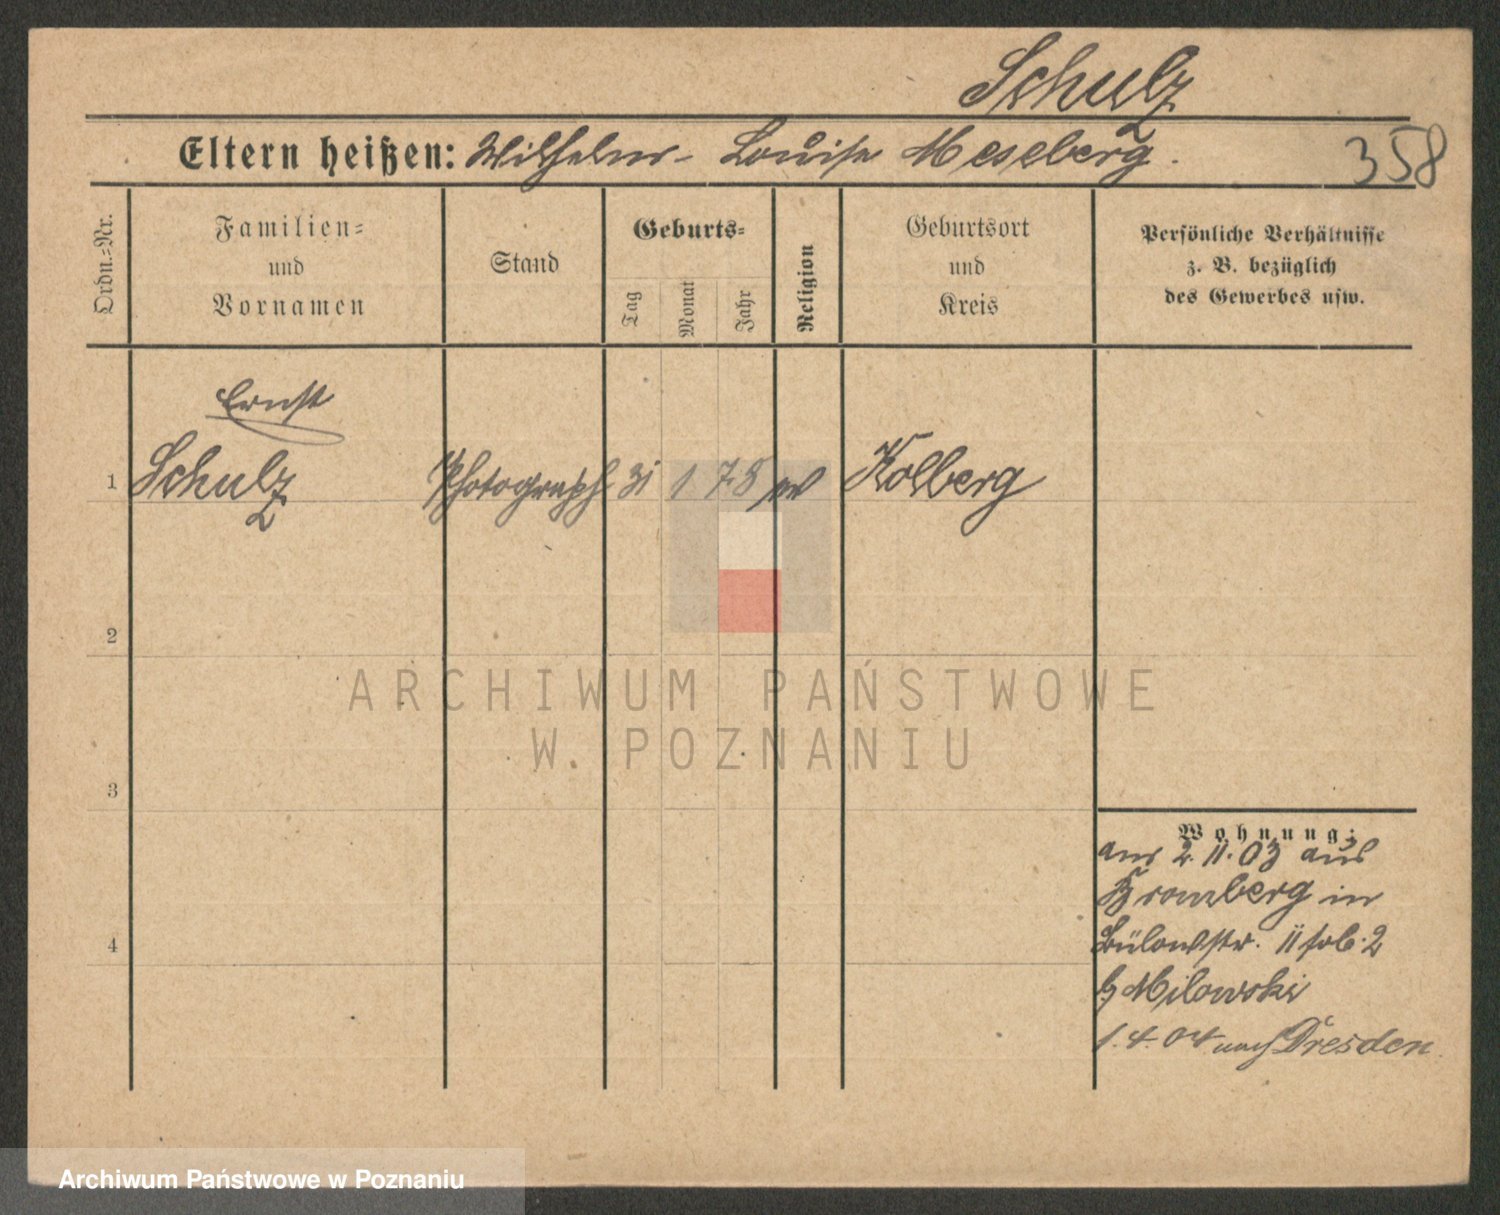 Schulz
Eltern heißen: Wilhelm - Louise Meseberg.
358
Ordn.=Nr.
Familien=
und
Vornamen
Stand
Geburts=
Tag
Monat
Jahr
Religion
Geburtsort
und
Kreis
Persönliche Verhältnisse
z. B. bezüglich
des Gewerbes usw.
Ernst
1 Schulz Photograph 31 1 78 ev Kolberg
2
ARCHIWUM PAŃSTWOWE
W. POZNANIU
3
Wohnung:
am 2. 11. 03 aus
Bromberg in
Bülowstr. 11
b Milowski
1. 4. 04 nach Dresden.
4
Archiwum Państwowe w Poznaniu